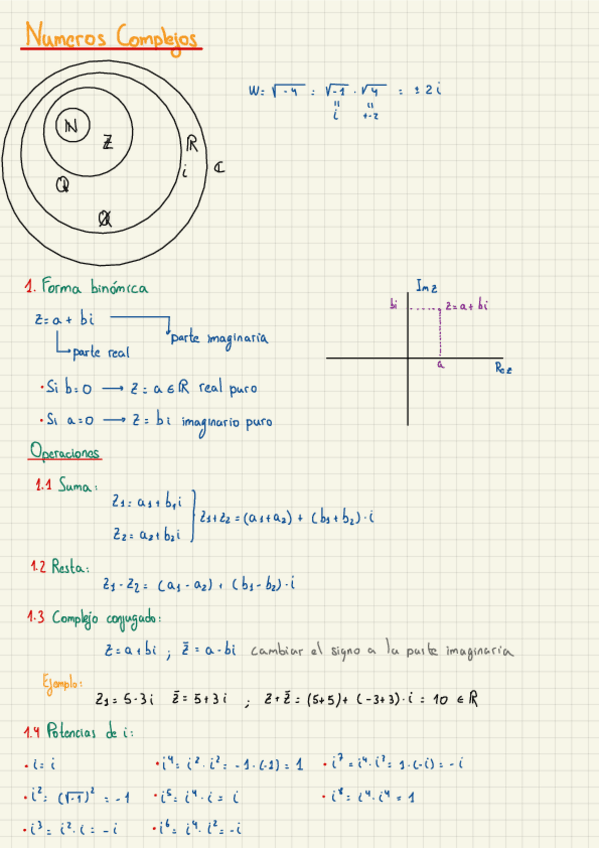 Numeros Complejos
W = √-4 = √-1 · √4 = ±2i
" "
i +-2
N
Z
R
Q
i
C
Q
1. Forma binómica
z = a + bi
parte imaginaria
parte real
· Si b=0 → z = a ∈ R real puro
· Si a=0 → z = bi imaginario puro
Im z
bi
z=a+bi
a
Re z
Operaciones
1.1 Suma:
z1 = a1 + b1i
z1+z2 = (a1+a2) + (b1+b2)·i
z2 = a2+b2i
1.2 Resta:
z1 - z2 = (a1 - a2) + (b1 - b2)·i
1.3 Complejo conjugado:
z = a+bi ; z̄ = a-bi cambiar el signo a la parte imaginaria
Ejemplo:
z1 = 5-3i z̄ = 5+3i ; z+z̄ = (5+5)+(-3+3)·i = 10 ∈ R
1.4 Potencias de i:
· i = i · i⁴ = i²·i² = -1·(-1) = 1 · i⁷ = i⁴·i³ = 1·(-i) = -i
· i² = (√-1)² = -1 · i⁵ = i⁴·i = i · i⁸ = i⁴·i⁴ = 1
· i³ = i²·i = -i · i⁶ = i⁴·i² = -i